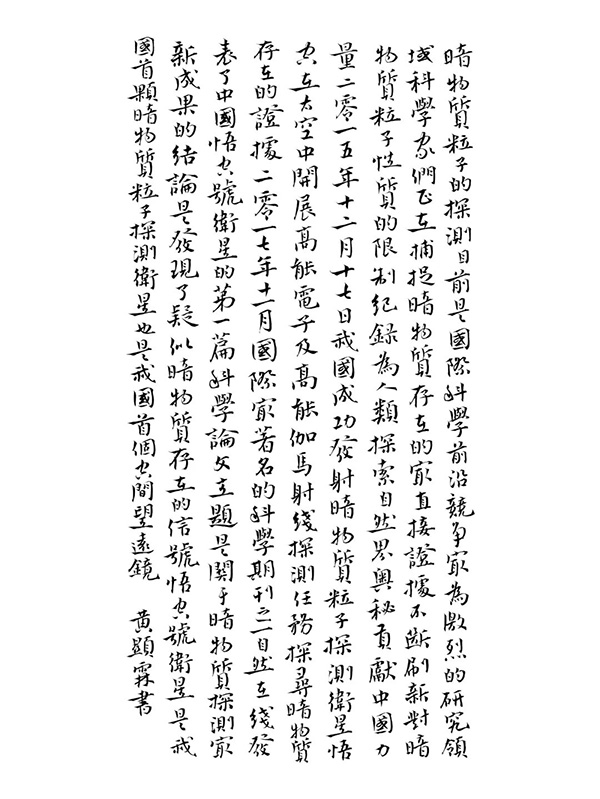 暗物質粒子的探測目前是國際科學前沿競爭最為激烈的研究領
域科學家們正在捕捉暗物質存在的最直接證據不斷刷新對暗
物質粒子性質的限制紀錄為人類探索自然界奧秘貢獻中國力
量二零一五年十二月十七日我國成功發射暗物質粒子探測衛星悟
空在太空中開展高能電子及高能伽馬射綫探測任務探尋暗物質
存在的證據二零一七年十一月國際最著名的科學期刊之一自然在綫發
表了中國悟空號衛星的第一篇科學論文主題是關于暗物質探測最
新成果的結論是發現了疑似暗物質存在的信號悟空號衛星是我
國首顆暗物質粒子探測衛星也是我國首個空間望遠鏡 黄顯霖書